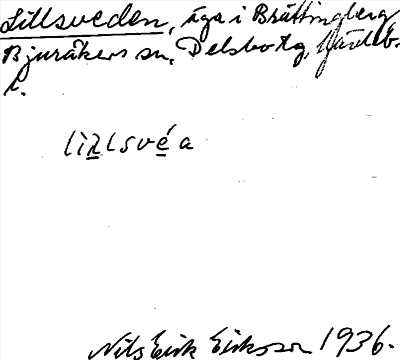 Lillsveden, äga i Brättingberg
Bjuråkers sn, Delsbo tg, Gävleb.
l.
lìllsvéa
Nils Erik Eriksson 1936.